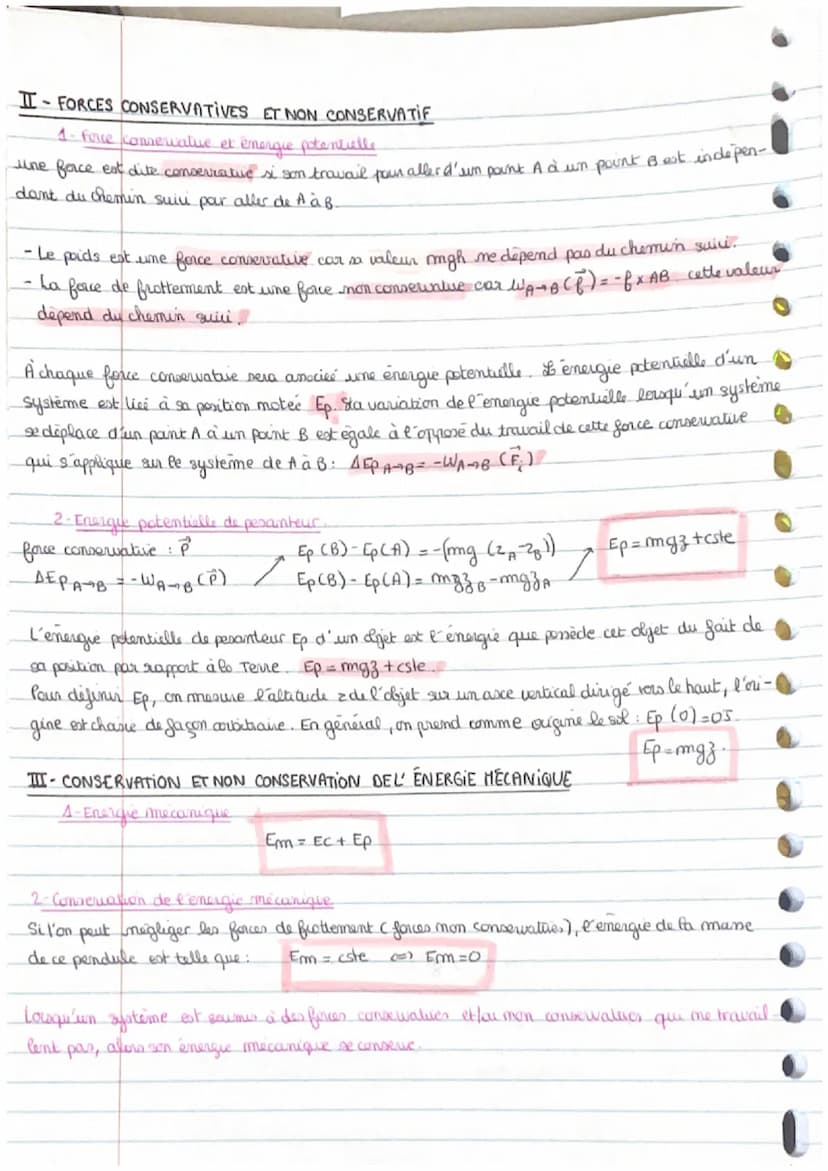 II - FORCES CONSERVATIVES ET NON CONSERVATIF
1- Force conservative et énergie potentielle
une force est dite conservative si son travail pour aller d'un point A à un point B est indépen-
dant du chemin suivi par aller de A à B.
- Le poids est une force conservative car sa valeur mgh ne dépend pas du chemin suivi.
- La force de frottement est une force non conservative car W_A→B (f⃗) = -f x AB cette valeur
dépend du chemin suivi.
À chaque force conservative sera associé une énergie potentielle. L'énergie potentielle d'un
système est liée à sa position notée Ep. Sa variation de l'énergie potentielle lorsqu'un système
se déplace d'un point A à un point B est égale à l'opposé du travail de cette force conservative
qui s'applique sur le système de A à B : ΔEp A→B = -W A→B (F⃗i)
2- Energie potentielle de pesanteur
force conservative : P⃗
ΔEp A→B = -W A→B (P⃗)
Ep (B) - Ep (A) = -(mg (zA-zB))
Ep(B) - Ep(A) = mgzB - mgzA
Ep = mgz + cste
L'énergie potentielle de pesanteur Ep d'un objet est l'énergie que possède cet objet du fait de
sa position par rapport à la Terre. Ep = mgz + cste.
Pour définir Ep, on mesure l'altitude z de l'objet sur un axe vertical dirigé vers le haut, l'ori-
gine est choisie de façon arbitraire. En général, on prend comme origine le sol : Ep (0) = 0J.
Ep = mgz.
III - CONSERVATION ET NON CONSERVATION DE L'ÉNERGIE MÉCANIQUE
1- Energie mécanique
Em = Ec + Ep
2- Conservation de l'énergie mécanique
Si l'on peut négliger les forces de frottement (forces non conservatives), l'énergie de la masse
de ce pendule est telle que : Em = cste <=> Em = 0
Lorsqu'un système est soumis à des forces conservatives et/ou non conservatives qui ne travail-
lent pas, alors son énergie mécanique se conserve.